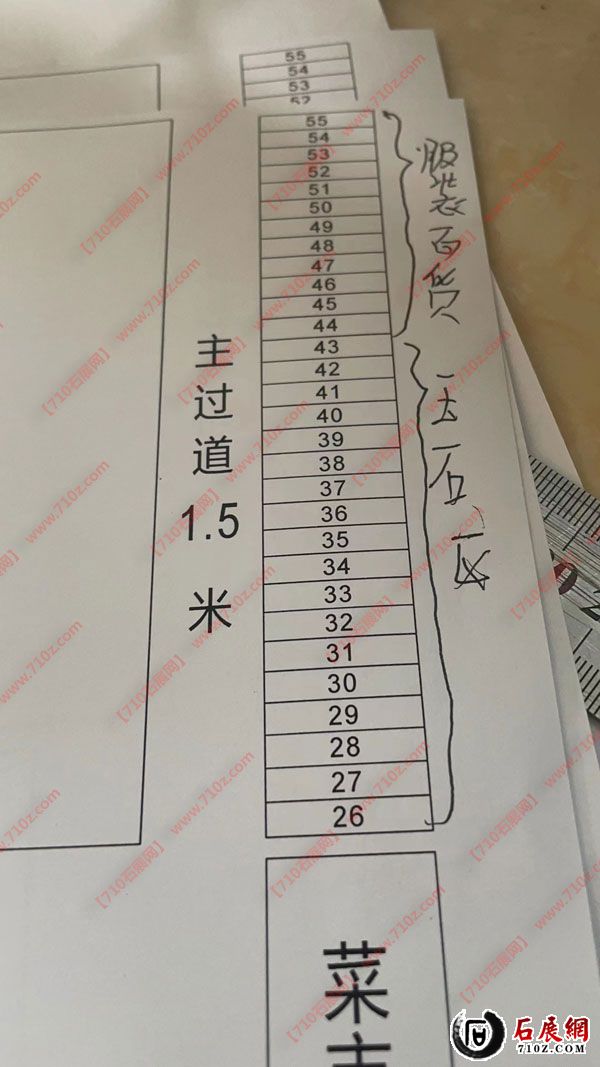 55
54
53
52
55
54
53
52
51
50
49
48
47
46
45
44
43
42
41
40
39
38
37
36
35
34
33
32
31
30
29
28
27
26
服装百货
玉石区
主过道1.5米
菜市
【710石展网】 www.710z.com
石展網
710Z.COM